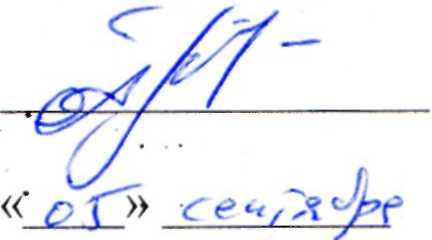 «05» сентября